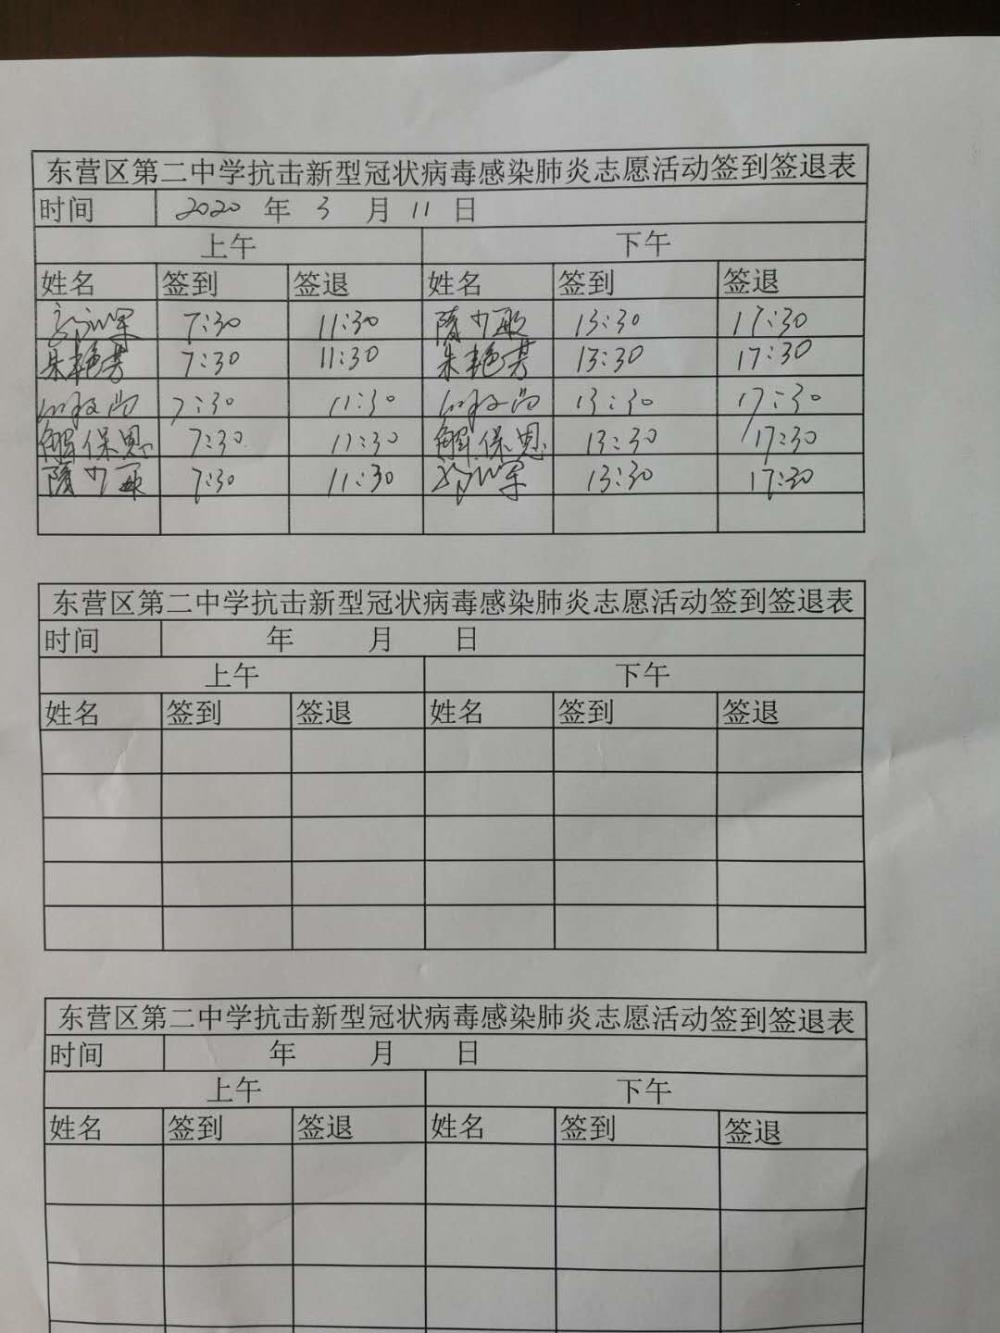 东营区第二中学抗击新型冠状病毒感染肺炎志愿活动签到签退表
时间 2020 年 3 月 11 日
上午 下午
姓名 签到 签退 姓名 签到 签退
7:30 11:30 隋少敏 13:30 17:30
朱艳芳 7:30 11:30 朱艳芳 13:30 17:30
7:30 11:30 13:30 17:30
解保恩 7:30 11:30 解保恩 13:30 17:30
隋少敏 7:30 11:30 13:30 17:30
东营区第二中学抗击新型冠状病毒感染肺炎志愿活动签到签退表
时间 年 月 日
上午 下午
姓名 签到 签退 姓名 签到 签退
东营区第二中学抗击新型冠状病毒感染肺炎志愿活动签到签退表
时间 年 月 日
上午 下午
姓名 签到 签退 姓名 签到 签退